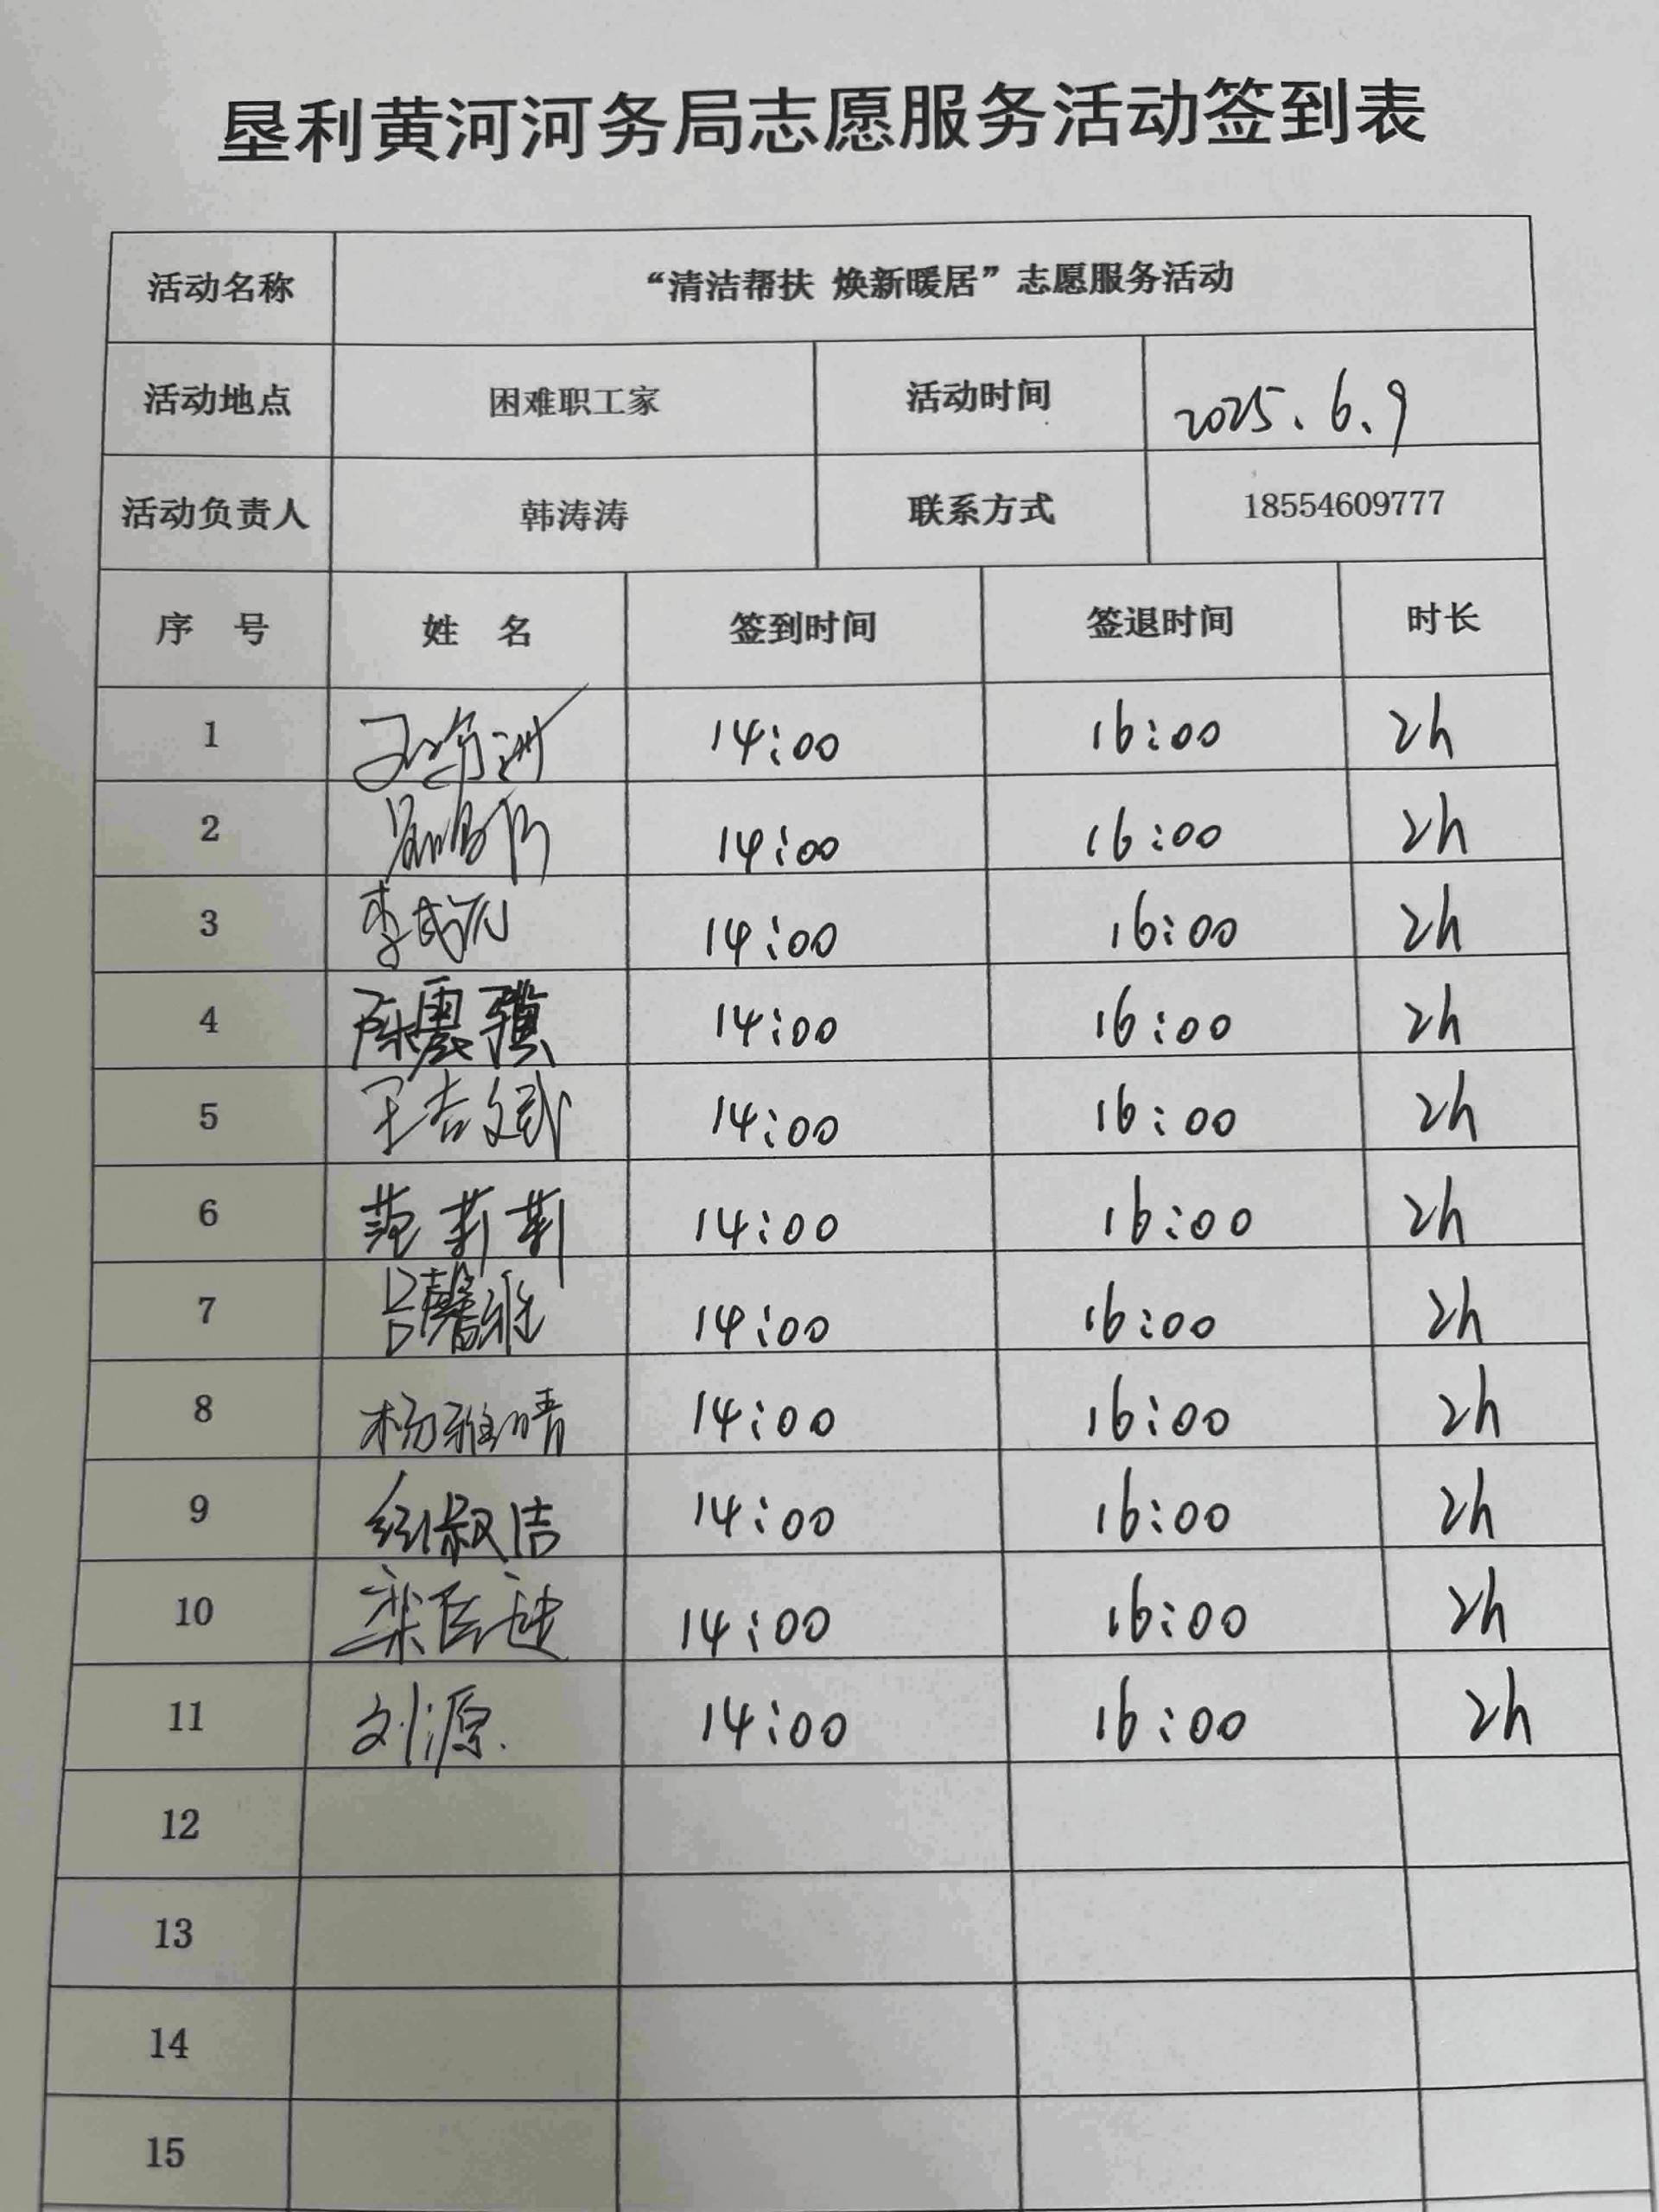 垦利黄河河务局志愿服务活动签到表
活动名称 “清洁帮扶 焕新暖居”志愿服务活动
活动地点 困难职工家 活动时间 2025.6.9
活动负责人 韩涛涛 联系方式 18554609777
序 号 姓 名 签到时间 签退时间 时长
1 14:00 16:00 2h
2 14:00 16:00 2h
3 14:00 16:00 2h
4 陈震骥 14:00 16:00 2h
5 王吉文斌 14:00 16:00 2h
6 范莉莉 14:00 16:00 2h
7 吕馨维 14:00 16:00 2h
8 杨雅晴 14:00 16:00 2h
9 纪淑洁 14:00 16:00 2h
10 14:00 16:00 2h
11 刘源 14:00 16:00 2h
12
13
14
15